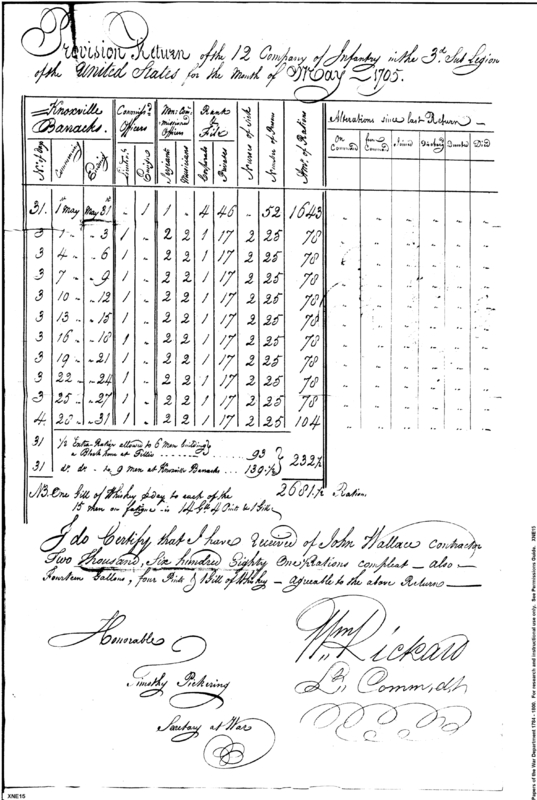 Provision Return of the 12 Company of Infantry in the 3d Sub Legion
of the United States for the Month of May 1795.
Knoxville Barracks. Commiss'd Officers Non Commissioned Officers Rank & File Nurses of Sick Number of Persons No. of Rations Alterations since last Return
No. of Days Commencing Ending Lieut.t Ensign Sergeant Musicians Corporals Privates On Command from Command Joined Discharg'd Deserted Died
31. 1st May May 31st " 1 1 " 4 46 " 52 1643
3 1 " " 3 1 " 2 2 1 17 2 25 78
3 4 " " 6 1 " 2 2 1 17 2 25 78
3 7 " " 9 1 " 2 2 1 17 2 25 78
3 10 " " 12 1 " 2 2 1 17 2 25 78
3 13 " " 15 1 " 2 2 1 17 2 25 78
3 16 " " 18 1 " 2 2 1 17 2 25 78
3 19 " " 21 1 " 2 2 1 17 2 25 78
3 22 " " 24 1 " 2 2 1 17 2 25 78
3 25 " " 27 1 " 2 2 1 17 2 25 78
4. 28 " " 31 1 " 2 2 1 17 2 25 104
31 1/2 Extra Ration allowed to 6 Men building
a Block house at Tellico 93
31 do. do. to 9 men at Knoxville Barracks 139.1/2 232 1/2
2681.1/2 Rations
NB. One Gill of Whisky p day to each of the
15 men on fatigue is 14 Galls 4 Pints & 1 Gill
I do Certify that I have Received of John Wallace contractor
Two thousand, Six hundred Eighty One 1/2 Rations compleat — also —
Fourteen Gallons, four Pints & 1 Gill of Whisky — agreeable to the above Return
Honorable
Timothy Pickering
Secretary at War
Wm Rickard
Lt. Comm,d,t
XNE15
Papers of the War Department 1784 - 1800. For research and instructional use only. See Permissions Guide. XNE15